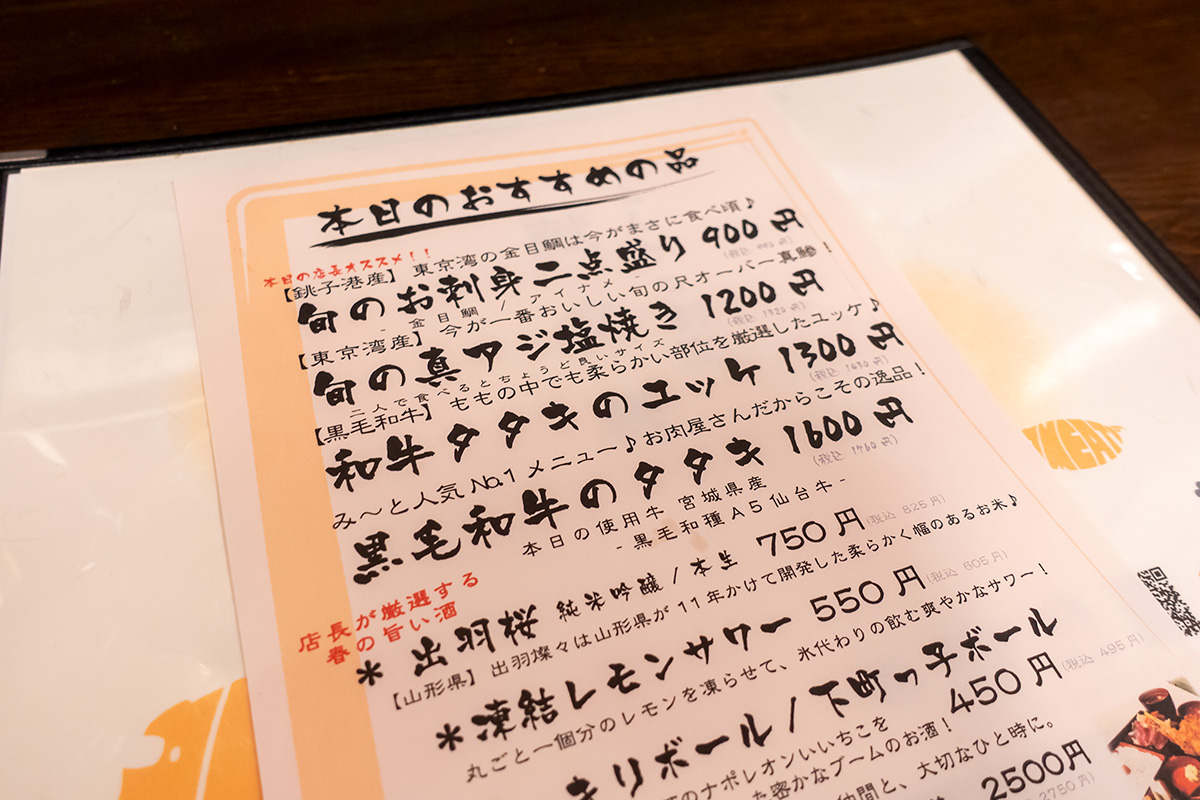 本日のおすすめの品
本日の店長オススメ！！
【銚子港産】 東京湾の金目鯛は今がまさに食べ頃♪
旬のお刺身二点盛り 900円
- 金目鯛 / アイナメ -
【東京湾産】 今が一番おいしい旬の尺オーバー真鯵！
旬の真アジ塩焼き 1200円
(税込 1320円)
二人で食べるとちょうど良いサイズ
【黒毛和牛】 ももの中でも柔らかい部位を厳選したユッケ♪
和牛タタキのユッケ 1300円
(税込 1430円)
み〜と人気No.1メニュー♪お肉屋さんだからこその逸品！
黒毛和牛のタタキ 1600円
(税込 1760円)
本日の使用牛 宮城県産
- 黒毛和種A5仙台牛 -
店長が厳選する
春の旨い酒
* 出羽桜 純米吟醸 / 本生 750円(税込 825円)
【山形県】 出羽燦々は山形県が11年かけて開発した柔らかく幅のあるお米♪
* 凍結レモンサワー 550円(税込 605円)
丸ごと一個分のレモンを凍らせて、氷代わりの飲む爽やかなサワー！
キリボール / 下町っ子ボール
450円(税込 495円)
のナポレオンいいちこを
た密かなブームのお酒！
仲間と、大切なひと時に。
2500円
2750円)
MEAT